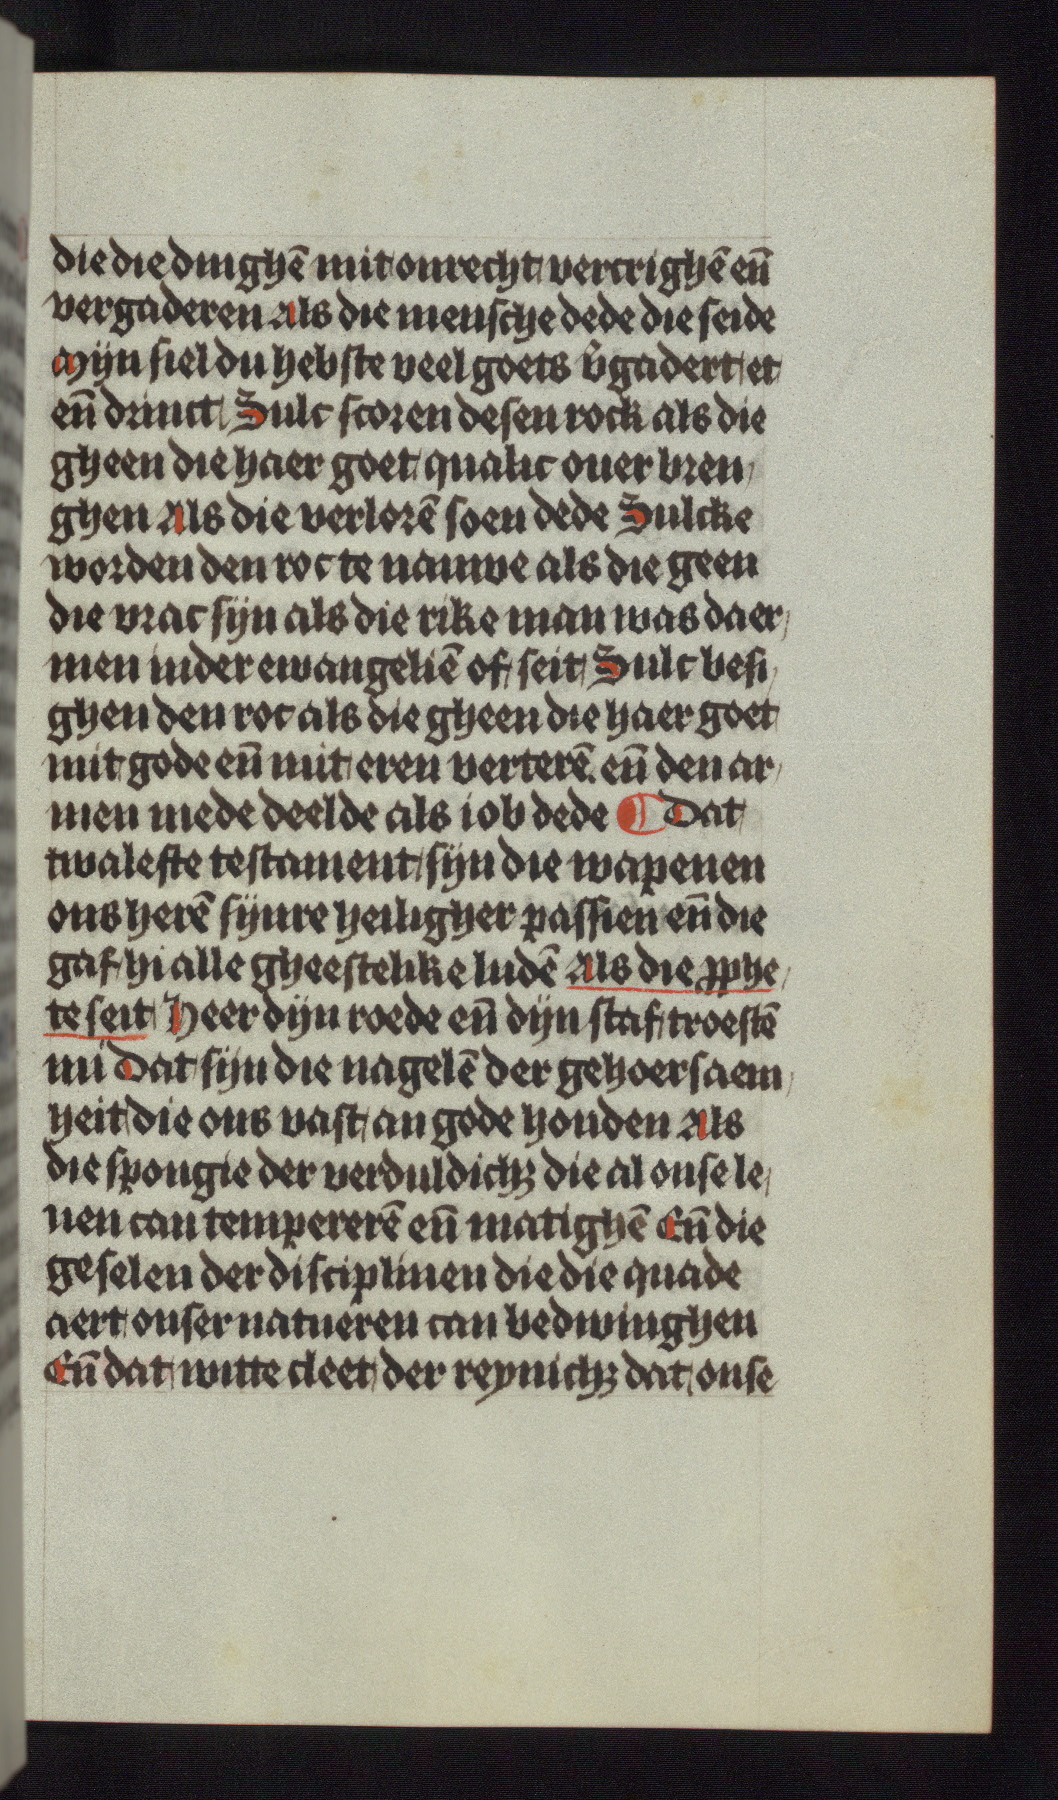 die die dinghē mit onrecht vercrighē en̄
vergaderen Als die mensche dede die seide
Mijn siel du hebste veel goets v̄gadert et
en̄ drinct Sulc scoren desen rock als die
gheen die haer goet qualic ouer bren
ghen Als die verlorē soen dede Sulcke
worden den roc te nauwe als die geen
die vrac sijn als die rike man was daer
men inder ewangeliē of seit Sulc besi
ghen den roc als die gheen die haer goet
mit gode en̄ mit eren verterē. en̄ den ar
men mede deelde als iob dede ¶ Dat
twaleste testament sijn die wapenen
ons herē sijnre heiligher passien en̄ die
gaf hi alle gheestelike ludē Als die ꝓphe
te seit Heer dijn roede en̄ dijn staf troestē
mi Dat sijn die nagelē der gehoersaem
heit die ons vast an gode houden Als
die spongie der verduldichꝫ die al onse le
uen can tempererē en̄ matighē En̄ die
geselen der disciplinen die die quade
aert onser natueren can bedwinghen
En̄ dat witte cleet der reynichꝫ dat onse